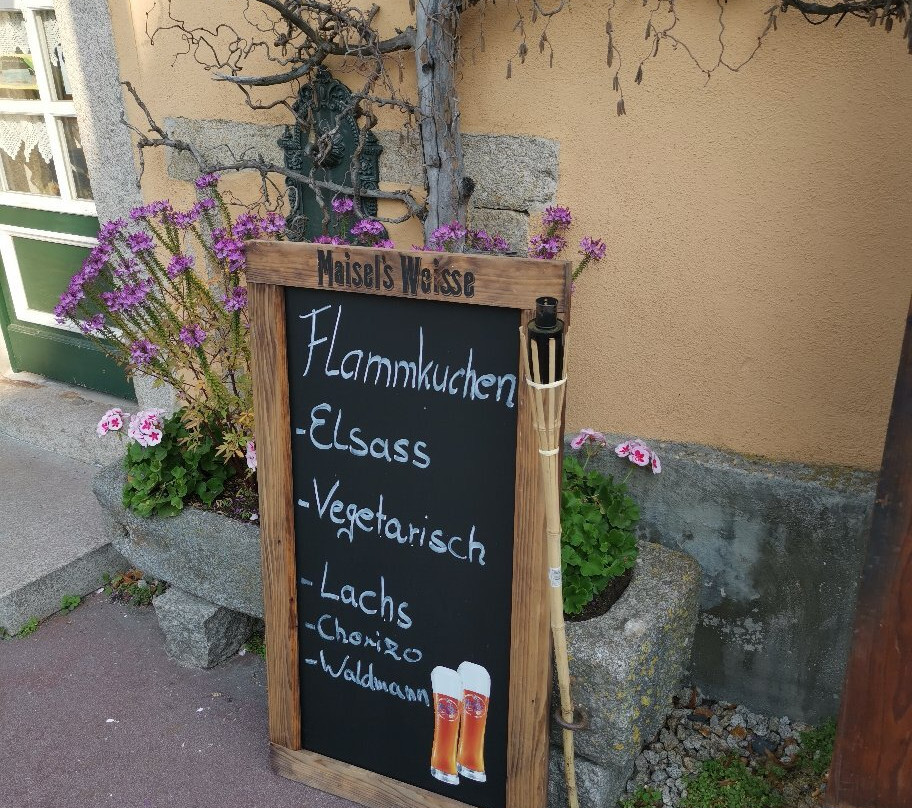 Maisel's Weisse
Flammkuchen
-Elsass
-Vegetarisch
-Lachs
-Chorizo
-Waldmann